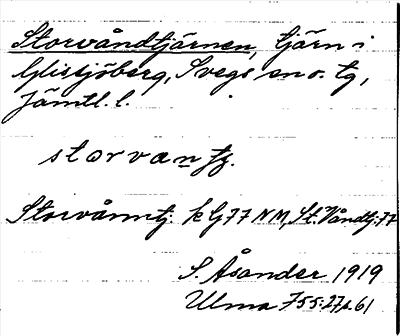 Storvåndtjärnen, tjärn i
Glissjöberg, Svegs sn o. tg,
Jämtl. l.
storvantj.
Storvånntj. k Gj 77 NM, St. Våndtj. 77
S. Åsander 1919
Ulma 755:27 s. 61